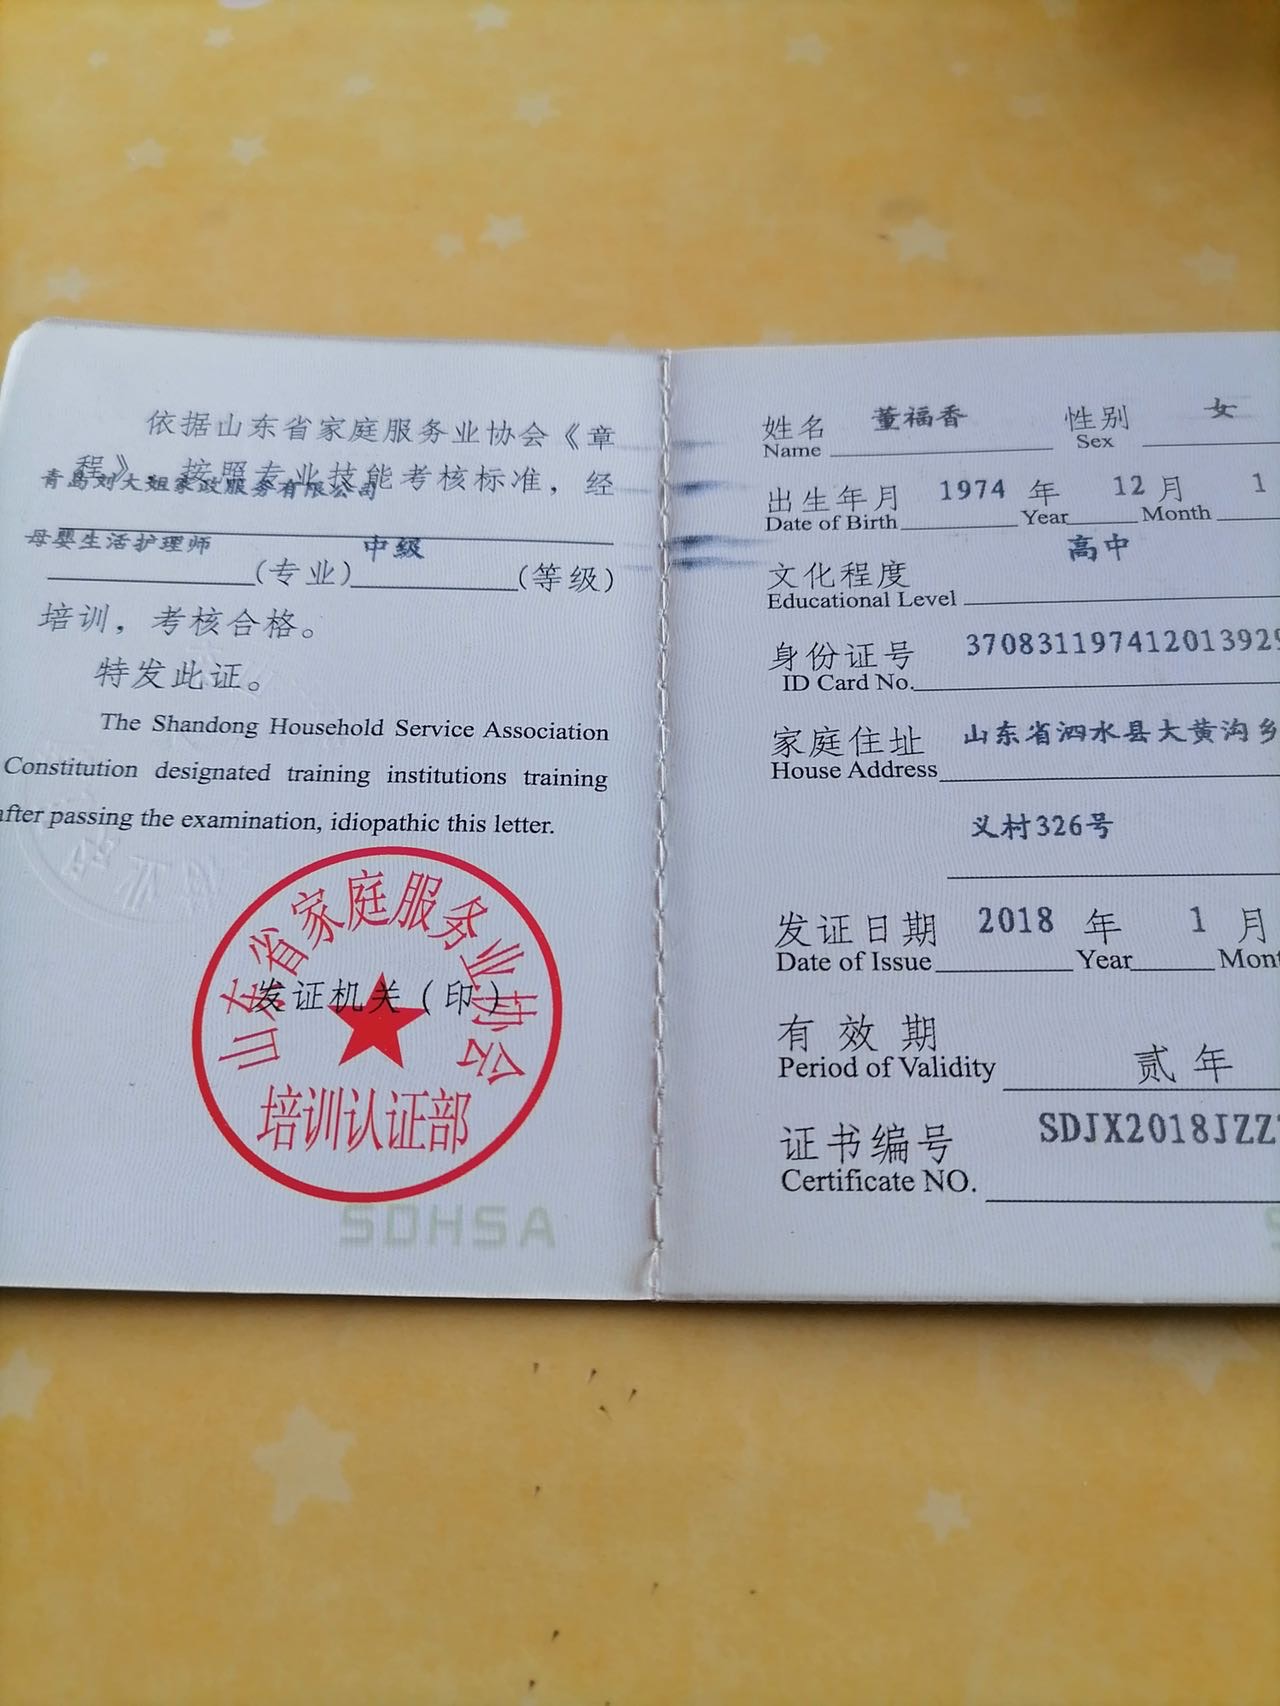 依据山东省家庭服务业协会《章
程》，按照专业技能考核标准，经
青岛刘大姐家政服务有限公司
母婴生活护理师(专业)中级(等级)
培训，考核合格。
特发此证。
The Shandong Household Service Association
Constitution designated training institutions training
after passing the examination, idiopathic this letter.
山东省家庭服务业协会
发证机关（印）
培训认证部
SDHSA
姓名 董福香 性别 女
Name Sex
出生年月 1974 年 12 月 1
Date of Birth Year Month
文化程度 高中
Educational Level
身份证号 37083119741201392
ID Card No.
家庭住址 山东省泗水县大黄沟乡
House Address
义村326号
发证日期 2018 年 1 月
Date of Issue Year Mont
有效期 贰年
Period of Validity
证书编号 SDJX2018JZZ
Certificate NO.